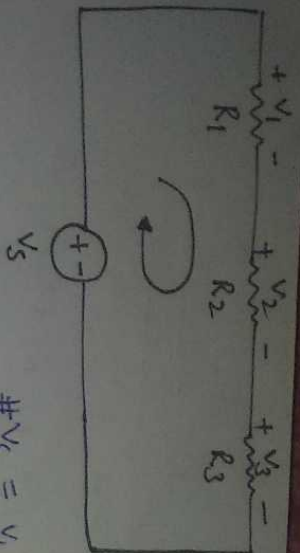 + V₁ -
R₁
+ V₂ -
R₂
+ V₃ -
R₃
+ -
Vs
#V₁ = V